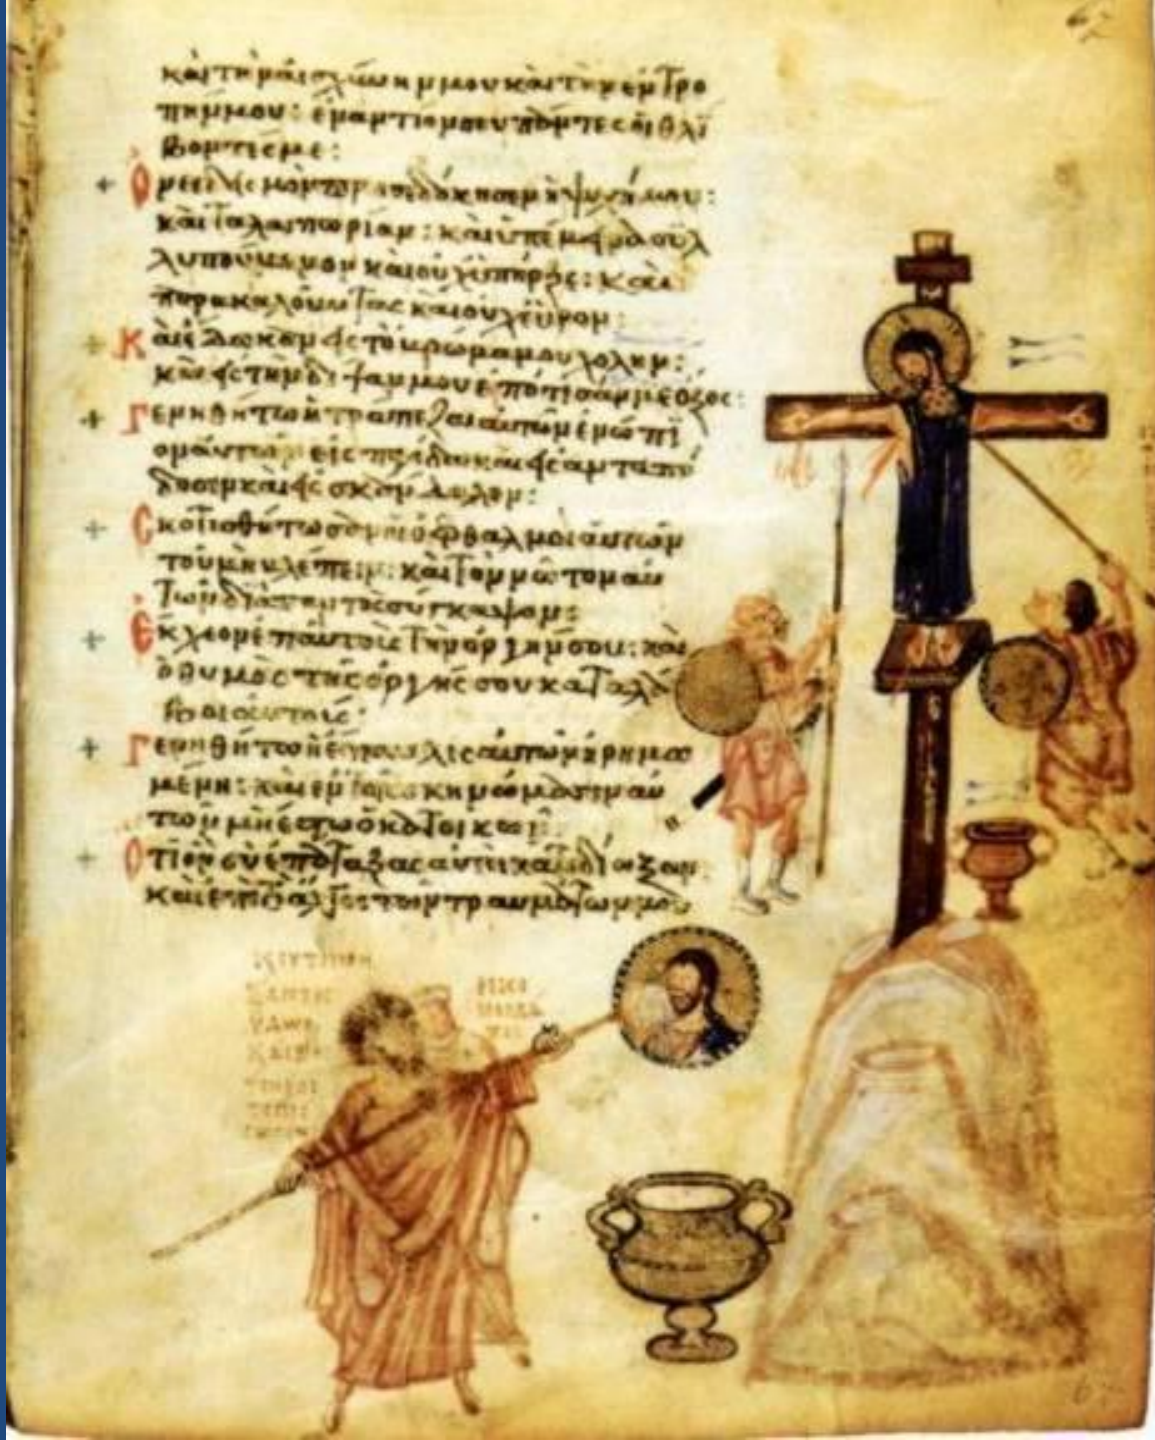 καὶ τὴν αἰσχύνην μου καὶ τὴν ἐντρο
πήν μου: ἐναντίον σου πάντες οἱ θλί
βοντές με:
Ὀνειδισμὸν προσεδόκησεν ἡ ψυχή μου:
καὶ ταλαιπωρίαν: καὶ ὑπέμεινα συλ
λυπούμενον καὶ οὐχ ὑπῆρξε: καὶ
παρακαλοῦντας καὶ οὐχ εὗρον:
Καὶ ἔδωκαν εἰς τὸ βρῶμά μου χολήν:
καὶ εἰς τὴν δίψαν μου ἐπότισάν με ὄξος:
Γενηθήτω ἡ τράπεζα αὐτῶν ἐνώπι
ον αὐτῶν εἰς παγίδα καὶ εἰς ἀνταπό
δοσιν καὶ εἰς σκάνδαλον:
Σκοτισθήτωσαν οἱ ὀφθαλμοὶ αὐτῶν
τοῦ μὴ βλέπειν: καὶ τὸν νῶτον αὐ
τῶν διὰ παντὸς σύγκαμψον:
Ἔκχεον ἐπ αὐτοὺς τὴν ὀργήν σου: καὶ
ὁ θυμὸς τῆς ὀργῆς σου καταλά
βοι αὐτούς:
Γενηθήτω ἡ ἔπαυλις αὐτῶν ἠρημω
μένη: καὶ ἐν τοῖς σκηνώμασιν αὐ
τῶν μὴ ἔστω ὁ κατοικῶν:
Ὅτι ὃν σὺ ἐπάταξας αὐτοὶ κατεδίωξαν:
καὶ ἐπὶ τὸ ἄλγος τῶν τραυμάτων μου